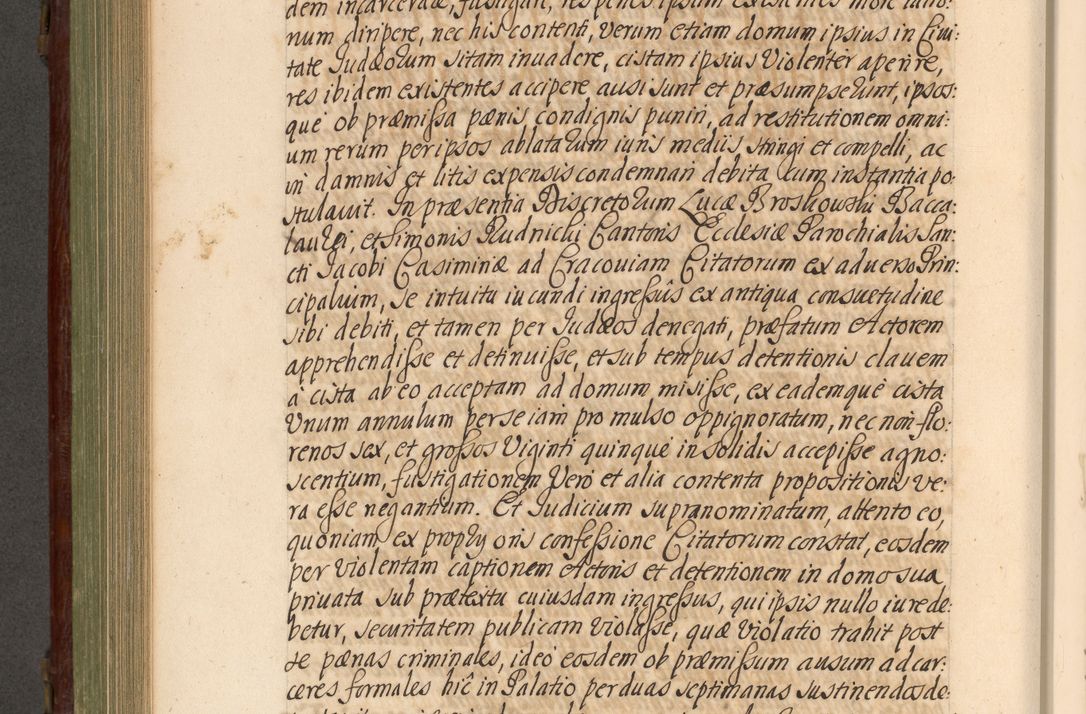 dem incarcerare, fustigari, res penes ipsum existentes more latro:
num diripere, nec his contenti, verum etiam domum ipsius in Civi:
tate Judæorum sitam invadere, cistam ipsius violenter aperire,
res ibidem existentes accipere ausi sunt et præsumpserunt, ipsos:
que ob præmissa pænis condignis puniri, ad restitutionem omni:
um rerum per ipsos ablatarum iuris mediis stringi et compelli, ac
in damnis et litis expensis condemnari debita cum instantia po:
stulavit. In præsentia Discretorum Lucæ Broskowski Bacca:
laurei, et Simonis Rudnicki Cantoris Ecclesiæ Parochialis San:
cti Jacobi Casimiriæ ad Cracoviam Citatorum ex adverso Prin:
cipalium, se intuitu iucundi ingressûs ex antiqua consuetudine
sibi debiti, et tamen per Judæos denegati, præfatum Actorem
apprehendisse et detinuisse, et sub tempus detentionis clavem
à cista ab eo acceptam ad domum misisse, ex eademque cista
Unum annulum per se iam pro mulso oppignoratum, nec non flo:
renos sex, et grossos Viginti quinque in solidis accepisse agno:
scentium, fustigationem Verò et alia contenta propositionis ve:
ra esse negantium. Et Judicium supranominatum, attento eo,
quoniam ex propry oris confessione Citatorum constat, eosdem
per violentam captionem Actoris et detentionem in domo sua
privata sub prætextu cuiusdam ingressus, qui ipsis nullo iure de:
betur, securitatem publicam violasse, quæ violatio trahit post
se pænas criminales, ideo eosdem ob præmissum ausum ad car:
ceres formales hîc in Palatio per duas septimanas sustinendos de: